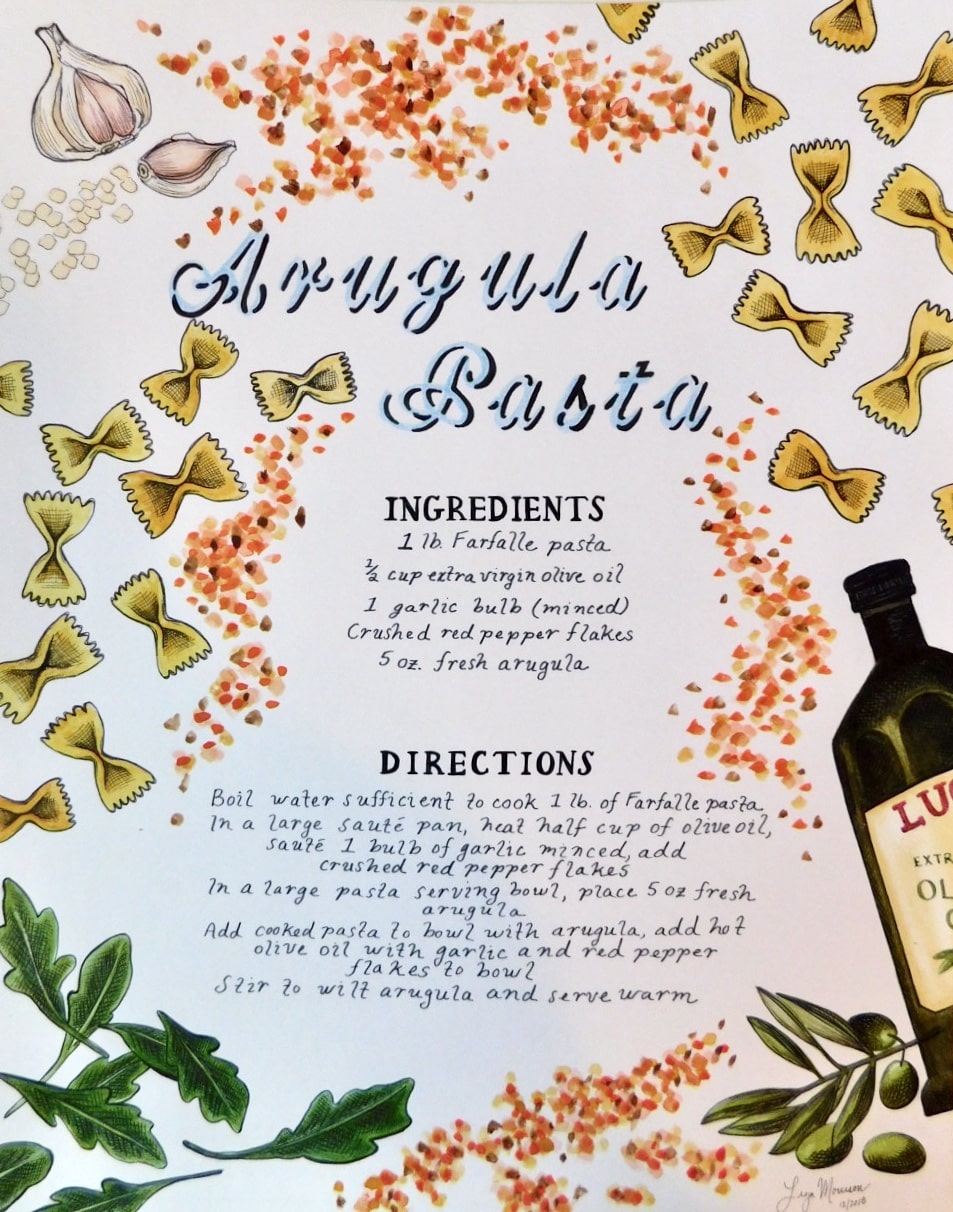 Arugula
Pasta
INGREDIENTS
1 lb. Farfalle pasta
½ cup extra virgin olive oil
1 garlic bulb (minced)
Crushed red pepper flakes
5 oz. fresh arugula
DIRECTIONS
Boil water sufficient to cook 1 lb. of Farfalle pasta.
In a large sauté pan, heat half cup of olive oil,
sauté 1 bulb of garlic minced, add
crushed red pepper flakes
In a large pasta serving bowl, place 5 oz fresh
arugula
Add cooked pasta to bowl with arugula, add hot
olive oil with garlic and red pepper
flakes to bowl
Stir to wilt arugula and serve warm
LU
EXTR
OL